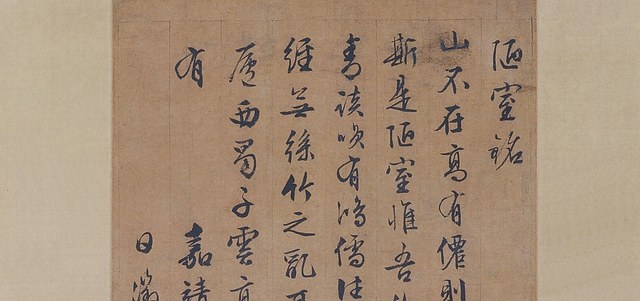 陋室銘
山不在高有僊則
斯是陋室惟吾
青談唉有鴻儒往
經無絲竹之亂耳
廬西蜀子雲亭
有
嘉靖
日